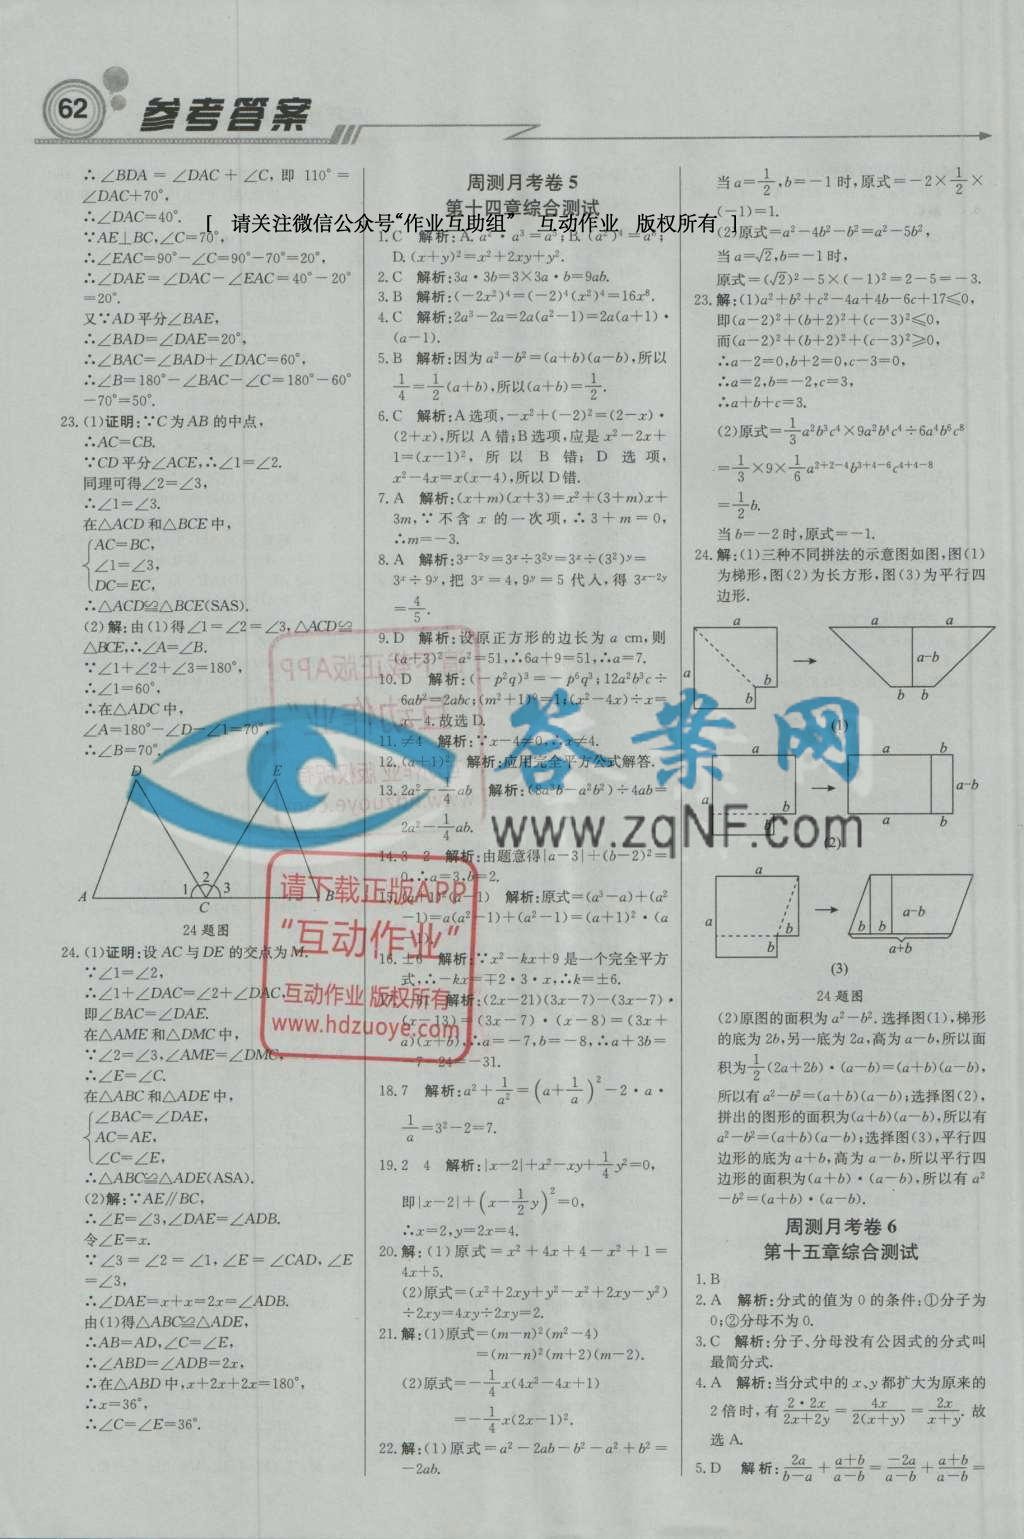 62
参考答案
[ 请关注微信公众号“作业互助组” 互动作业 版权所有 ]
∴∠BDA=∠DAC+∠C,即 110°=
∠DAC+70°,
∴∠DAC=40°.
∵AE⊥BC,∠C=70°,
∴∠EAC=90°-∠C=90°-70°=20°,
∴∠DAE=∠DAC-∠EAC=40°-20°
=20°.
又∵AD平分∠BAE,
∴∠BAD=∠DAE=20°,
∴∠BAC=∠BAD+∠DAC=60°,
∴∠B=180°-∠BAC-∠C=180°-60°
-70°=50°.
23.(1)证明:∵C为AB的中点,
∴AC=CB.
∵CD平分∠ACE,∴∠1=∠2.
同理可得∠2=∠3,
∴∠1=∠3.
在△ACD和△BCE中,
AC=BC,
∠1=∠3,
DC=EC,
∴△ACD≌△BCE(SAS).
(2)解:由(1)得∠1=∠2=∠3,△ACD≌
△BCE,∴∠A=∠B.
∵∠1+∠2+∠3=180°,
∴∠1=60°,
∴在△ADC中,
∠A=180°-∠D-∠1=70°,
∴∠B=70°.
D E
A 1 2 3 B
C
24题图
24.(1)证明:设AC与DE的交点为M.
∵∠1=∠2,
∴∠1+∠DAC=∠2+∠DAC,
即∠BAC=∠DAE.
在△AME和△DMC中,
∵∠2=∠3,∠AME=∠DMC,
∴∠E=∠C.
在△ABC和△ADE中,
∠BAC=∠DAE,
AC=AE,
∠C=∠E,
∴△ABC≌△ADE(ASA).
(2)解:∵AE∥BC,
∴∠E=∠3,∠DAE=∠ADB.
令∠E=x.
∵∠3=∠2=∠1,∠E=∠CAD,∠E
=∠3,
∴∠DAE=x+x=2x=∠ADB.
由(1)得△ABC≌△ADE,
∴AB=AD,∠C=∠E,
∴∠ABD=∠ADB=2x,
∴在△ABD中,x+2x+2x=180°,
∴x=36°,
∴∠C=∠E=36°.
周测月考卷5
第十四章综合测试
1.C 解析:A.a²·a³=a⁵;B.(a²)⁴=a⁸;
D.(x+y)²=x²+2xy+y².
2.C 解析:3a·3b=3×3a·b=9ab.
3.B 解析:(-2x²)⁴=(-2)⁴(x²)⁴=16x⁸.
4.C 解析:2a³-2a=2a(a²-1)=2a(a+1)·
(a-1).
5.B 解析:因为a²-b²=(a+b)(a-b),所以
1/4=1/2(a+b),所以(a+b)=1/2.
6.C 解析:A选项,-x²+(-2)²=(2-x)·
(2+x),所以A错;B选项,应是x²-2x+
1=(x-1)²,所以B错;D选项,
x²-4x=x(x-4),所以D错.
7.A 解析:(x+m)(x+3)=x²+(3+m)x+
3m,∵不含x的一次项,∴3+m=0,
∴m=-3.
8.A 解析:3ˣ⁻²ʸ=3ˣ÷3²ʸ=3ˣ÷(3²)ʸ=
3ˣ÷9ʸ,把3ˣ=4,9ʸ=5代入,得3ˣ⁻²ʸ
=4/5.
9.D 解析:设原正方形的边长为a cm,则
(a+3)²-a²=51,∴6a+9=51,∴a=7.
10.D 解析:(-p²q)³=-p⁶q³;12a²b³c÷
6ab²=2abc;(m²+1)⁰=1;(x²-4x)÷x=
x-4.故选D.
11.≠4 解析:∵x-4≠0,∴x≠4.
12.(a+1)² 解析:应用完全平方公式解答.
13.2a²-1/4ab 解析:(8a³b-a²b²)÷4ab=
2a²-1/4ab.
14.3 2 解析:由题意得|a-3|+(b-2)²=
0,∴a=3,b=2.
15.(a+1)²(a-1) 解析:原式=(a³-a)+(a²
-1)=a(a²-1)+(a²-1)=(a+1)²·(a
-1).
16.±6 解析:∵x²-kx+9是一个完全平方
式,∴-kx=∓2·3·x,∴k=±6.
17.-31 解析:(2x-21)(3x-7)-(3x-7)·
(x-13)=(3x-7)·(x-8)=(3x+
a)(x+b),∴a=-7,b=-8,∴a+3b=
-7-24=-31.
18.7 解析:a²+1/a²=(a+1/a)²-2·a·
1/a=3²-2=7.
19.2 4 解析:|x-2|+x²-xy+1/4y²=0,
即|x-2|+(x-1/2y)²=0,
∴x=2,y=2x=4.
20.解:(1)原式=x²+4x+4-x²+1=
4x+5.
(2)原式=(x²+2xy+y²-x²+2xy-y²)
÷2xy=4xy÷2xy=2.
21.解:(1)原式=(m-n)²(m²-4)
=(m-n)²(m+2)(m-2).
(2)原式=-1/4x(4x²-4x+1)
=-1/4x(2x-1)².
22.解:(1)原式=a²-2ab-b²-a²+b²=
-2ab.
当a=1/2,b=-1时,原式=-2×1/2×
(-1)=1.
(2)原式=a²-4b²-b²=a²-5b²,
当a=√2,b=-1时,
原式=(√2)²-5×(-1)²=2-5=-3.
23.解:(1)a²+b²+c²-4a+4b-6c+17≤0,
即(a-2)²+(b+2)²+(c-3)²≤0,
而(a-2)²+(b+2)²+(c-3)²≥0,
∴a-2=0,b+2=0,c-3=0,
∴a=2,b=-2,c=3,
∴a+b+c=3.
(2)原式=1/3a²b³c⁴×9a²b⁴c⁴÷6a⁴b⁶c⁸
=1/3×9×1/6a²⁺²⁻⁴b³⁺⁴⁻⁶c⁴⁺⁴⁻⁸
=1/2b.
当b=-2时,原式=-1.
24.解:(1)三种不同拼法的示意图如图,图(1)
为梯形,图(2)为长方形,图(3)为平行四
边形.
a a a
a b b a-b b b
(1)
a a b
a b b a-b
(2)
a
a b b b b a-b a+b
(3)
24题图
(2)原图的面积为a²-b².选择图(1),梯形
的底为2b,另一底为2a,高为a-b,所以面
积为1/2(2a+2b)·(a-b)=(a+b)(a-b),
所以有a²-b²=(a+b)(a-b);选择图(2),
拼出的图形的面积为(a+b)(a-b),所以有
a²-b²=(a+b)(a-b);选择图(3),平行四
边形的底为a+b,高为a-b,所以平行四
边形的面积为(a+b)·(a-b),所以有a²
-b²=(a+b)·(a-b).
周测月考卷6
第十五章综合测试
1.B
2.A 解析:分式的值为0的条件:①分子为
0;②分母不为0.
3.C 解析:分子、分母没有公因式的分式叫
最简分式.
4.A 解析:当分式中的x、y都扩大为原来的
2倍时,有2·2x/2x+2y=4x/2(x+y)=2x/x+y.故
选A.
5.D 解析:2a/b-a+a+b/a-b=-2a/a-b+a+b/a-b=
答案网
www.zqNF.com
请下载正版APP
“互动作业”
互动作业 版权所有
www.hdzuoye.com